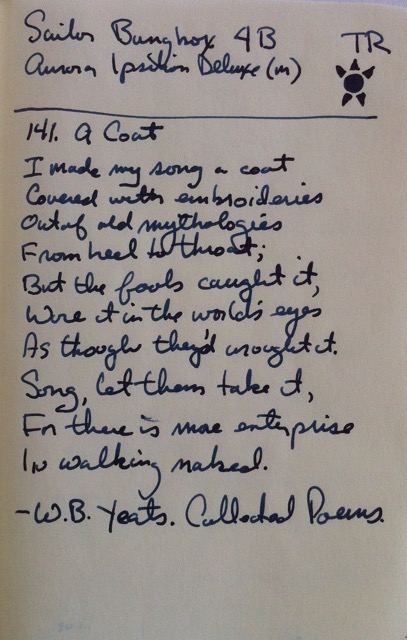 Sailor Bungbox 4B TR
Aurora Ipsilon Deluxe (m)
141. A Coat
I made my song a coat
Covered with embroideries
Out of old mythologies
From heel to throat;
But the fools caught it,
Wore it in the world's eyes
As though they'd wrought it.
Song, let them take it,
For there is more enterprise
In walking naked.
-W.B. Yeats. Collected Poems.